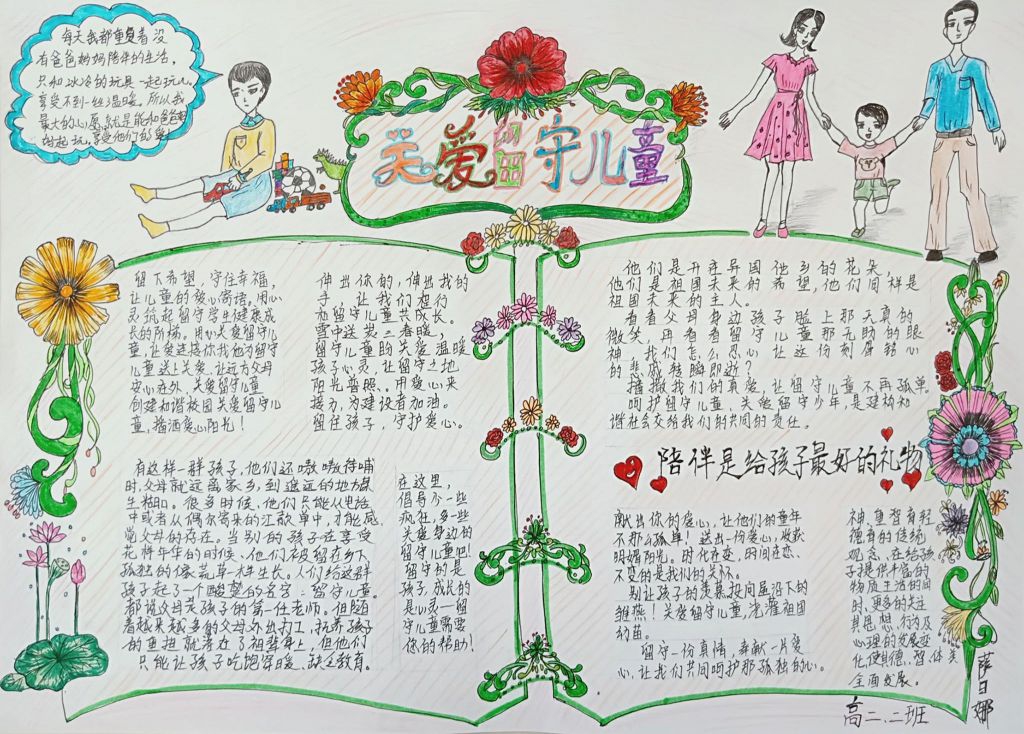 每天我都重复着没
有爸爸妈妈陪伴的生活,
只和冰冷的玩具一起玩儿,
享受不到一丝温暖。所以我
最大的心愿就是能和爸爸妈
妈一起玩,享受他们的爱!
关爱的留守儿童
留下希望,守住幸福,
让儿童的爱心简语,用心
灵筑起留守学生健康成
长的阶梯。用心关爱留守儿
童,让爱连接你我他为留守
儿童送上关爱,让远方父母
安心在外,关爱留守儿童
创建和谐校园关爱留守儿
童,播洒爱心阳光!
伸出你的,伸出我的
手,让我们想行
和留守儿童共成长。
雪中送炭三春暖,
留守儿童盼关爱温暖
孩子心灵,让留守之地
阳光普照。用爱心来
接力,为建设者加油。
留住孩子,守护爱心。
有这样一群孩子,他们还嗷嗷待哺
时,父母就远离家乡,到遥远的地方谋
生糊口。很多时候,他们只能从电话
中或者从偶尔寄来的汇款单中,才能感
觉父母的存在。当别的孩子在享受
花样年华的时候,他们被留在乡下,
孤独的像荒草一样生长。人们给这群
孩子起了一个酸楚的名字:留守儿童。
都说父母是孩子的第一任老师。但随
着越来越多的父母外出打工,抚养孩子
的重担就落在了祖辈身上,但他们
只能让孩子吃饱穿暖,缺乏教育。
在这里,
倡导少一些
疯狂,多一些
关爱身边的
留守儿童吧!
留守的是
孩子,成长的
是心灵一留
守儿童需要
你的帮助!
他们是开在异国他乡的花朵,
他们是祖国未来的希望,他们同样是
祖国未来的主人。
看看父母身边孩子脸上那天真的
微笑,再看看留守儿童那无助的眼
神,我们怎么忍心让这份刻骨铭心
的悲戚转瞬即逝?
播撒我们的真爱,让留守儿童不再孤单。
呵护留守儿童,关爱留守少年,是建构和
谐社会交给我们的共同的责任。
陪伴是给孩子最好的礼物
献出你的爱心,让他们的童年
不那么孤单!送出一份爱心,收获
明媚阳光。时代在变,时间在恋、
不变的是我们的关怀。
别让孩子的羡慕投向屋沿下的
雏燕!关爱留守儿童,浇灌祖国
幼苗。
留守一份真情,奉献一片爱
心,让我们共同呵护那孤独的心。
神,重智育轻
德育的传统
观念,在给孩
子提供丰富的
物质生活的同
时,更多的关注
其思想、行为及
心理的发展变
化,使其德、智、体美
全面发展。
高二、二班
萨日娜